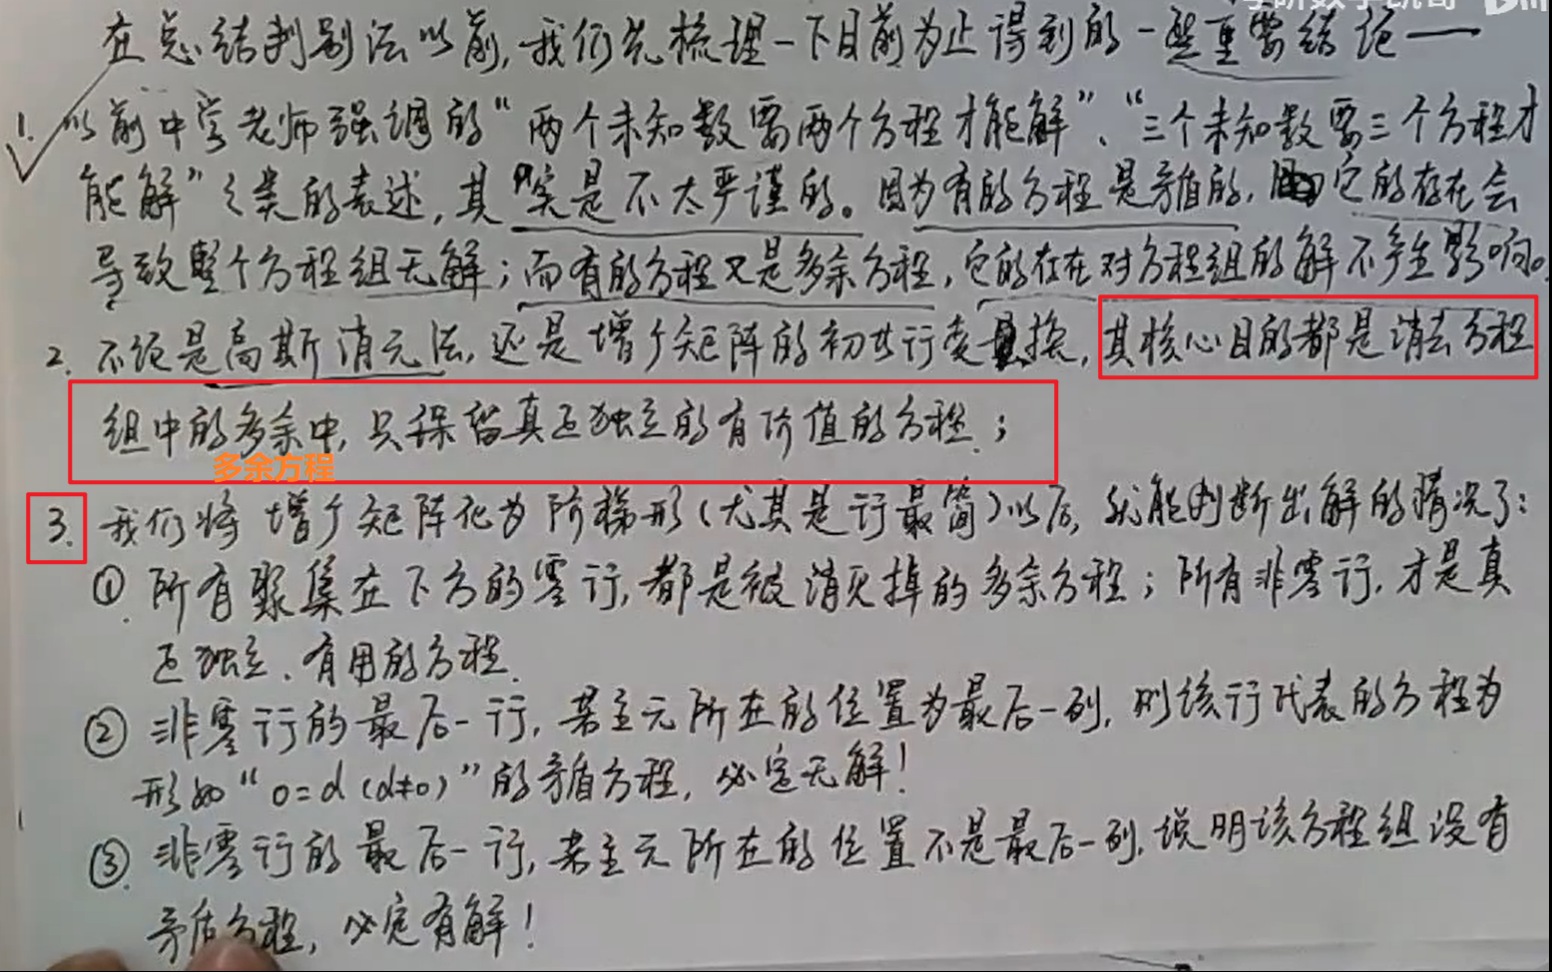 在总结判别法以前,我们先梳理一下目前为止得到的一些重要结论——
1. 以前中学老师强调的“两个未知数需两个方程才能解”、“三个未知数需三个方程才
能解”之类的表述,其实是不太严谨的。因为有的方程是矛盾的,它的存在会
导致整个方程组无解;而有的方程又是多余方程,它的存在对方程组的解不产生影响。
2. 不论是高斯消元法,还是增广矩阵的初等行变换,其核心目的都是消去方程
组中的多余中,只保留真正独立的有价值的方程;
多余方程
3. 我们将增广矩阵化为阶梯形(尤其是行最简)以后,就能判断出解的情况了:
① 所有聚集在下方的零行,都是被消灭掉的多余方程;所有非零行,才是真
正独立、有用的方程.
② 非零行的最后一行,若主元所在的位置为最后一列,则该行代表的方程为
形如“0=d(d≠0)”的矛盾方程,必定无解!
③ 非零行的最后一行,若主元所在的位置不是最后一列,说明该方程组没有
矛盾方程,必定有解!